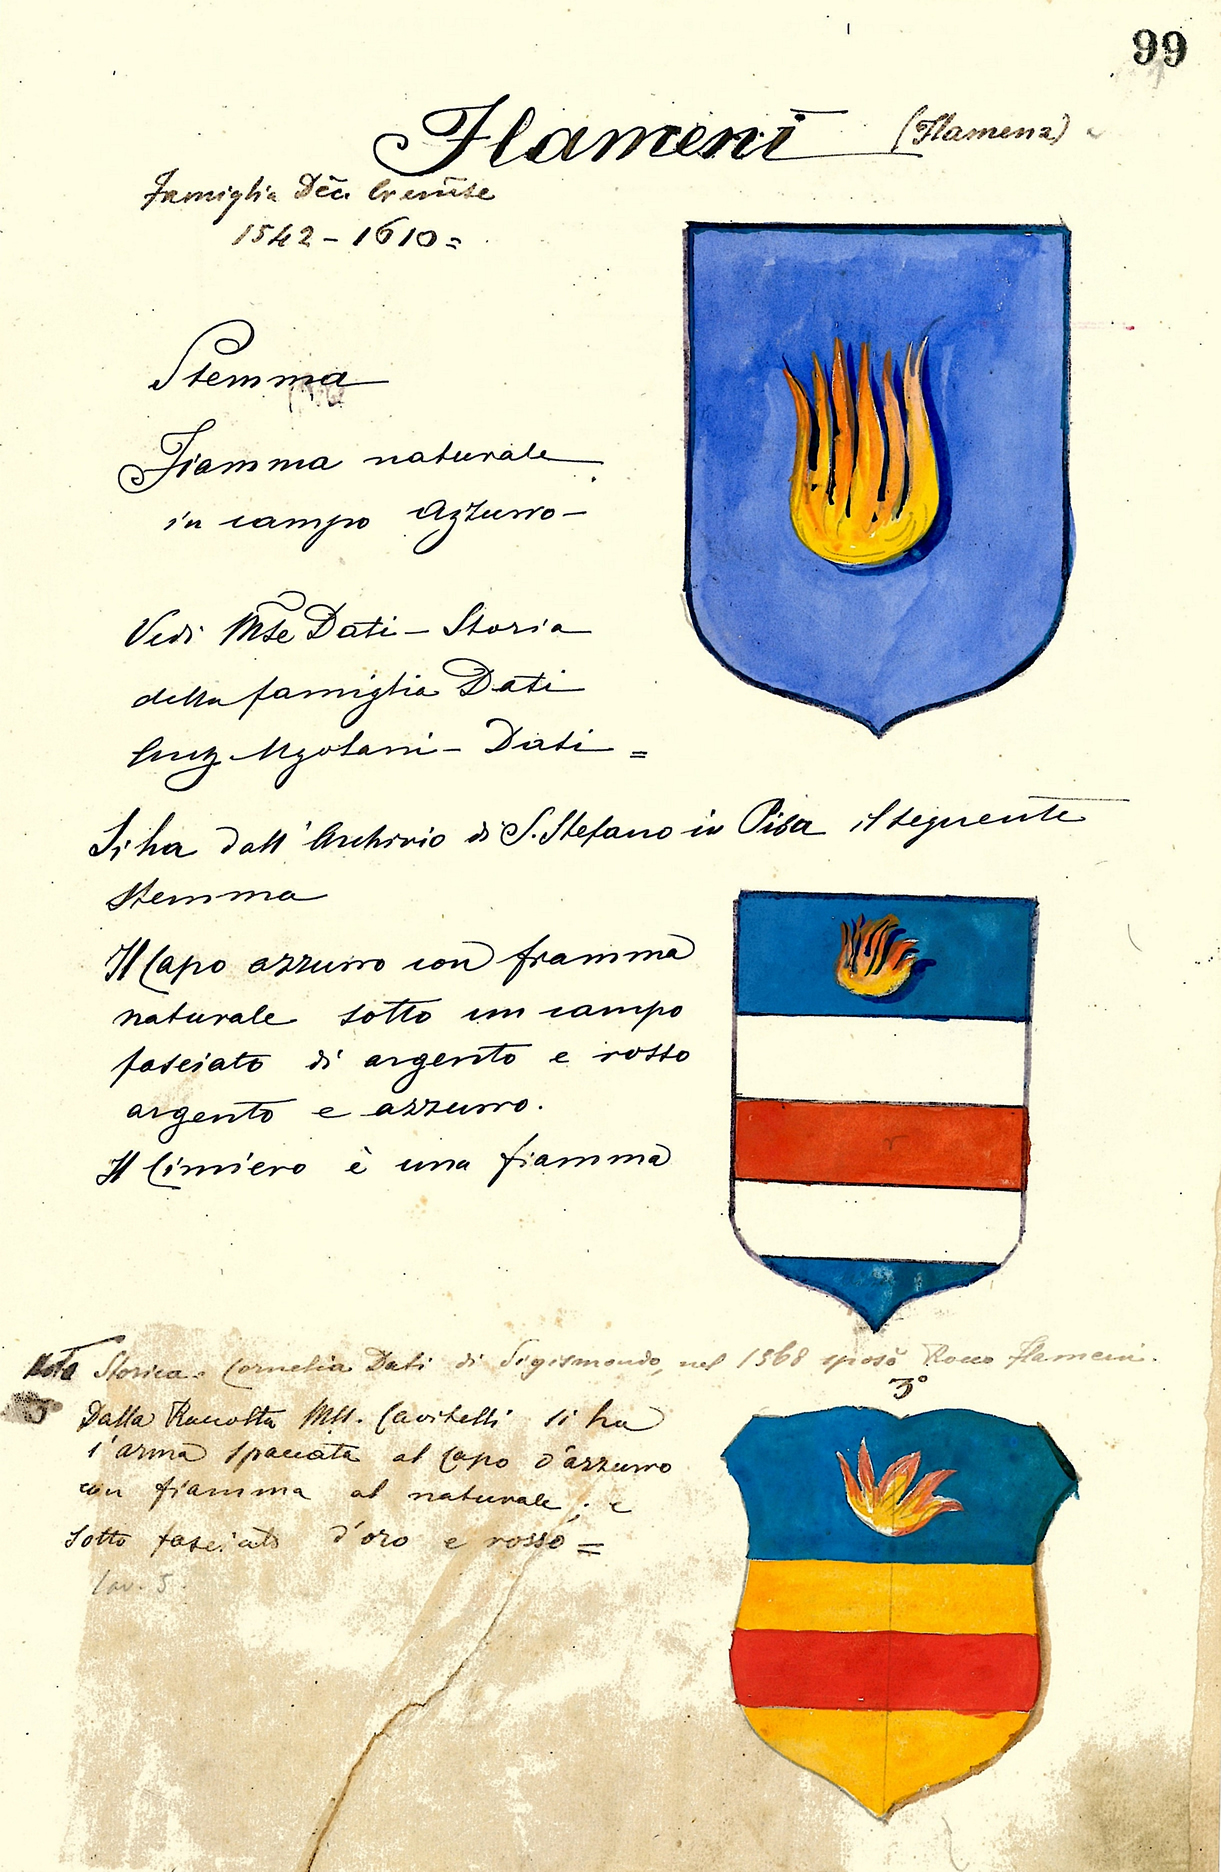 99
Flameni (Flamena)
Famiglia Dec. Cremse
1542 - 1610 =
Stemma
Fiamma naturale
in campo Azzurro -
Vedi Mse Dati - Storia
della famiglia Dati
Ugolani - Dati =
Si ha dall' Archivio di S. Stefano in Pisa il seguente
Stemma
Il Capo azzurro con fiamma
naturale sotto un campo
fasciato di argento e rosso
argento e azzurro.
Il Cimiero è una fiamma
Nota Storica. Cornelia Dati di Sigismondo, nel 1568 sposò Rocco Flameni.
3°
Dalla Raccolta Mss. Cavitelli si ha
l'arma spaccata al Capo d'azzurro
con fiamma al naturale; e
sotto fasciato d'oro e rosso =